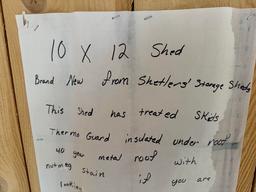 10 X 12 Shed
Brand New from Shetlers' Storage Sheds
This Shed has treated Skids
Thermo Guard insulated under roof
40 year metal roof with
nutmeg stain if you are
looking